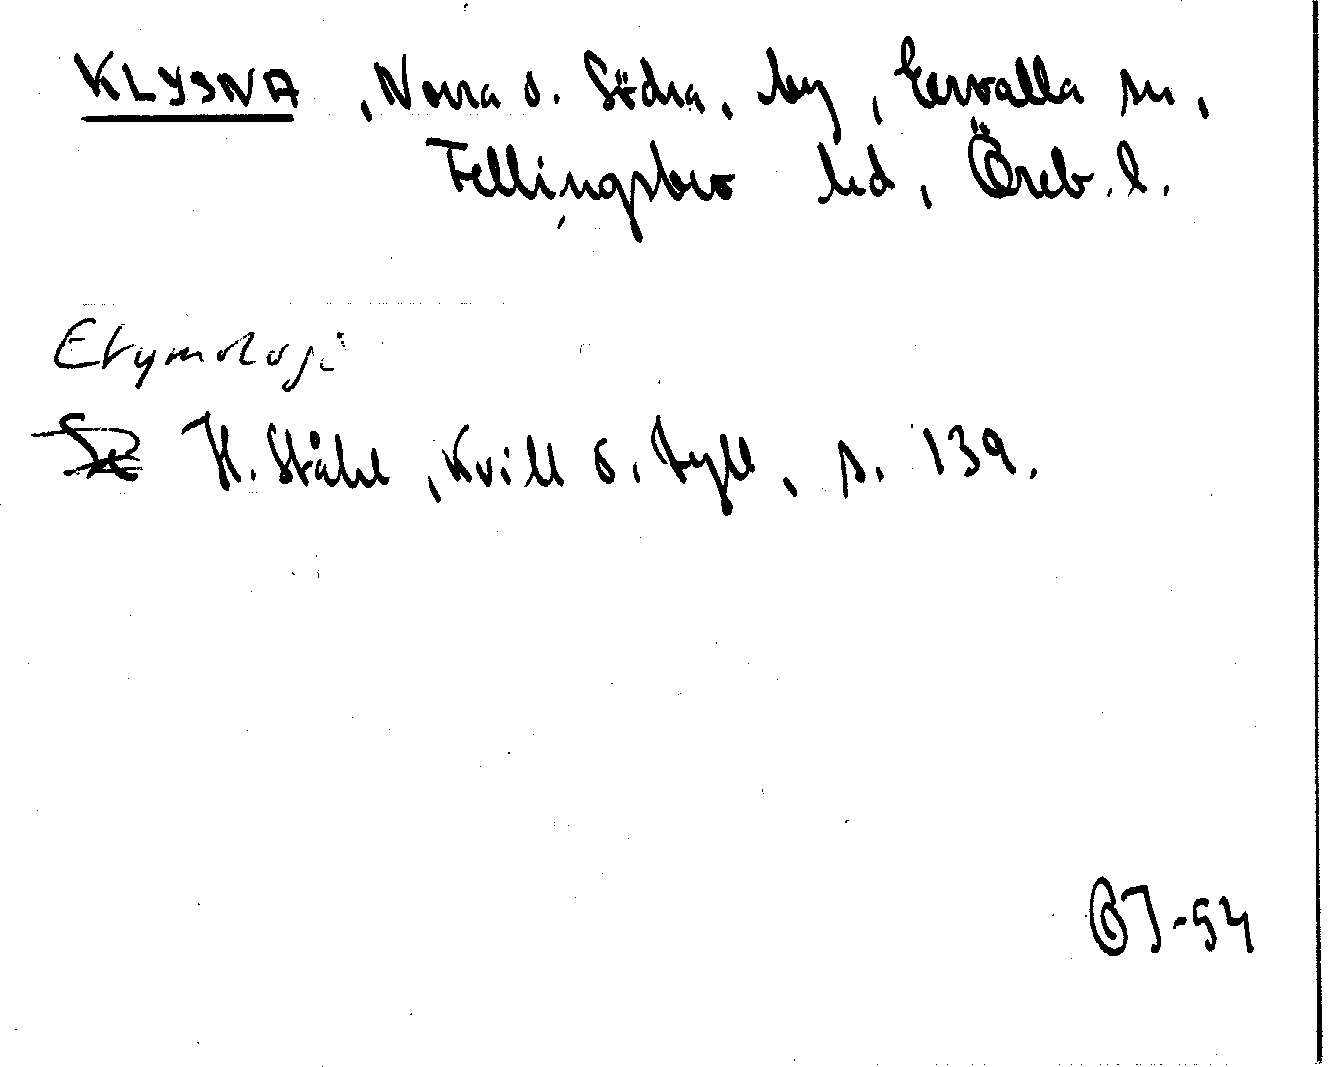 KLYSNA, Norra o. Södra, by, Ervalla sn,
Fellingsbro hd, Öreb. l.
Etymologi
H. Ståhl, Kvill o. Tyll, s. 139.
-54